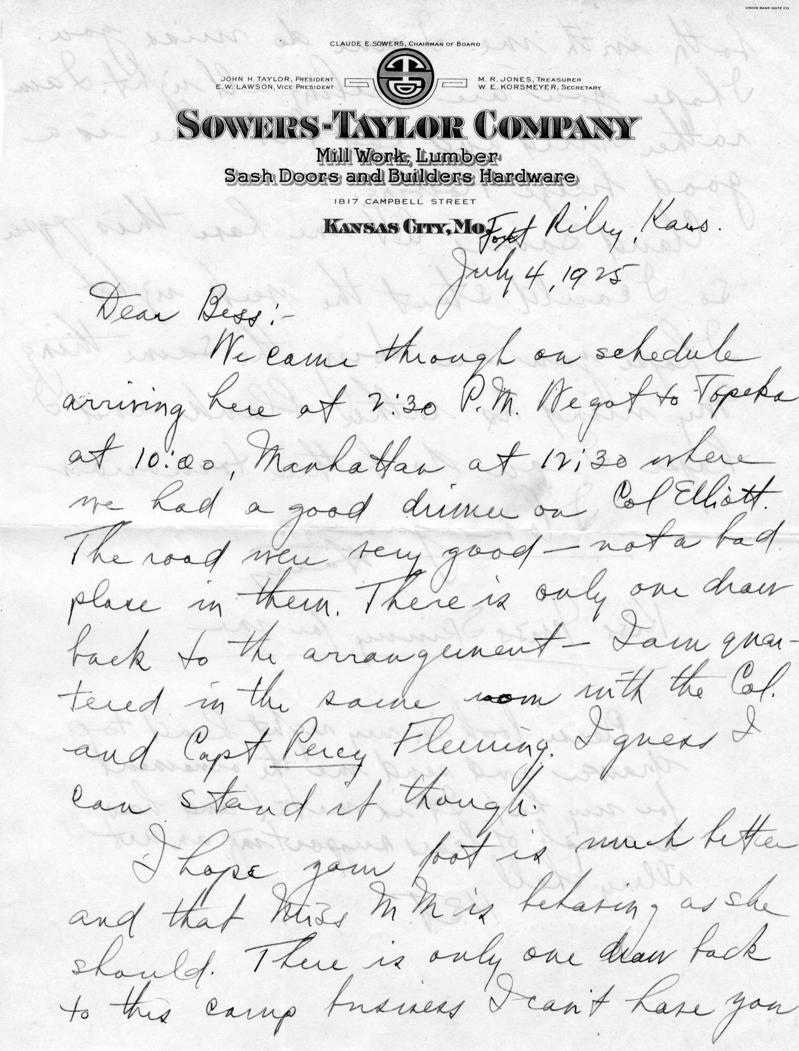 UNION BANK NOTE CO
CLAUDE E. SOWERS, CHAIRMAN OF BOARD
JOHN H. TAYLOR, PRESIDENT
E.W. LAWSON, VICE PRESIDENT
M. R. JONES, TREASURER
W. E. KORSMEYER, SECRETARY
SOWERS-TAYLOR COMPANY
Mill Work, Lumber
Sash Doors and Builders Hardware
1817 CAMPBELL STREET
KANSAS CITY, MO.
Fort Riley, Kans.
July 4, 1925
Dear Bess:-
We came through on schedule
arriving here at 2:30 P.M. We got to Topeka
at 10:00, Manhattan at 12:30 where
we had a good dinner on Col Elliott.
The road were very good - not a bad
place in them. There is only one draw
back to the arrangement - I am quar-
tered in the same room with the Col.
and Capt Percy Fleming. I guess I
can stand it though.
I hope your foot is much better
and that Miss M M is behaving as she
should. There is only one draw back
to this camp business I can't have you